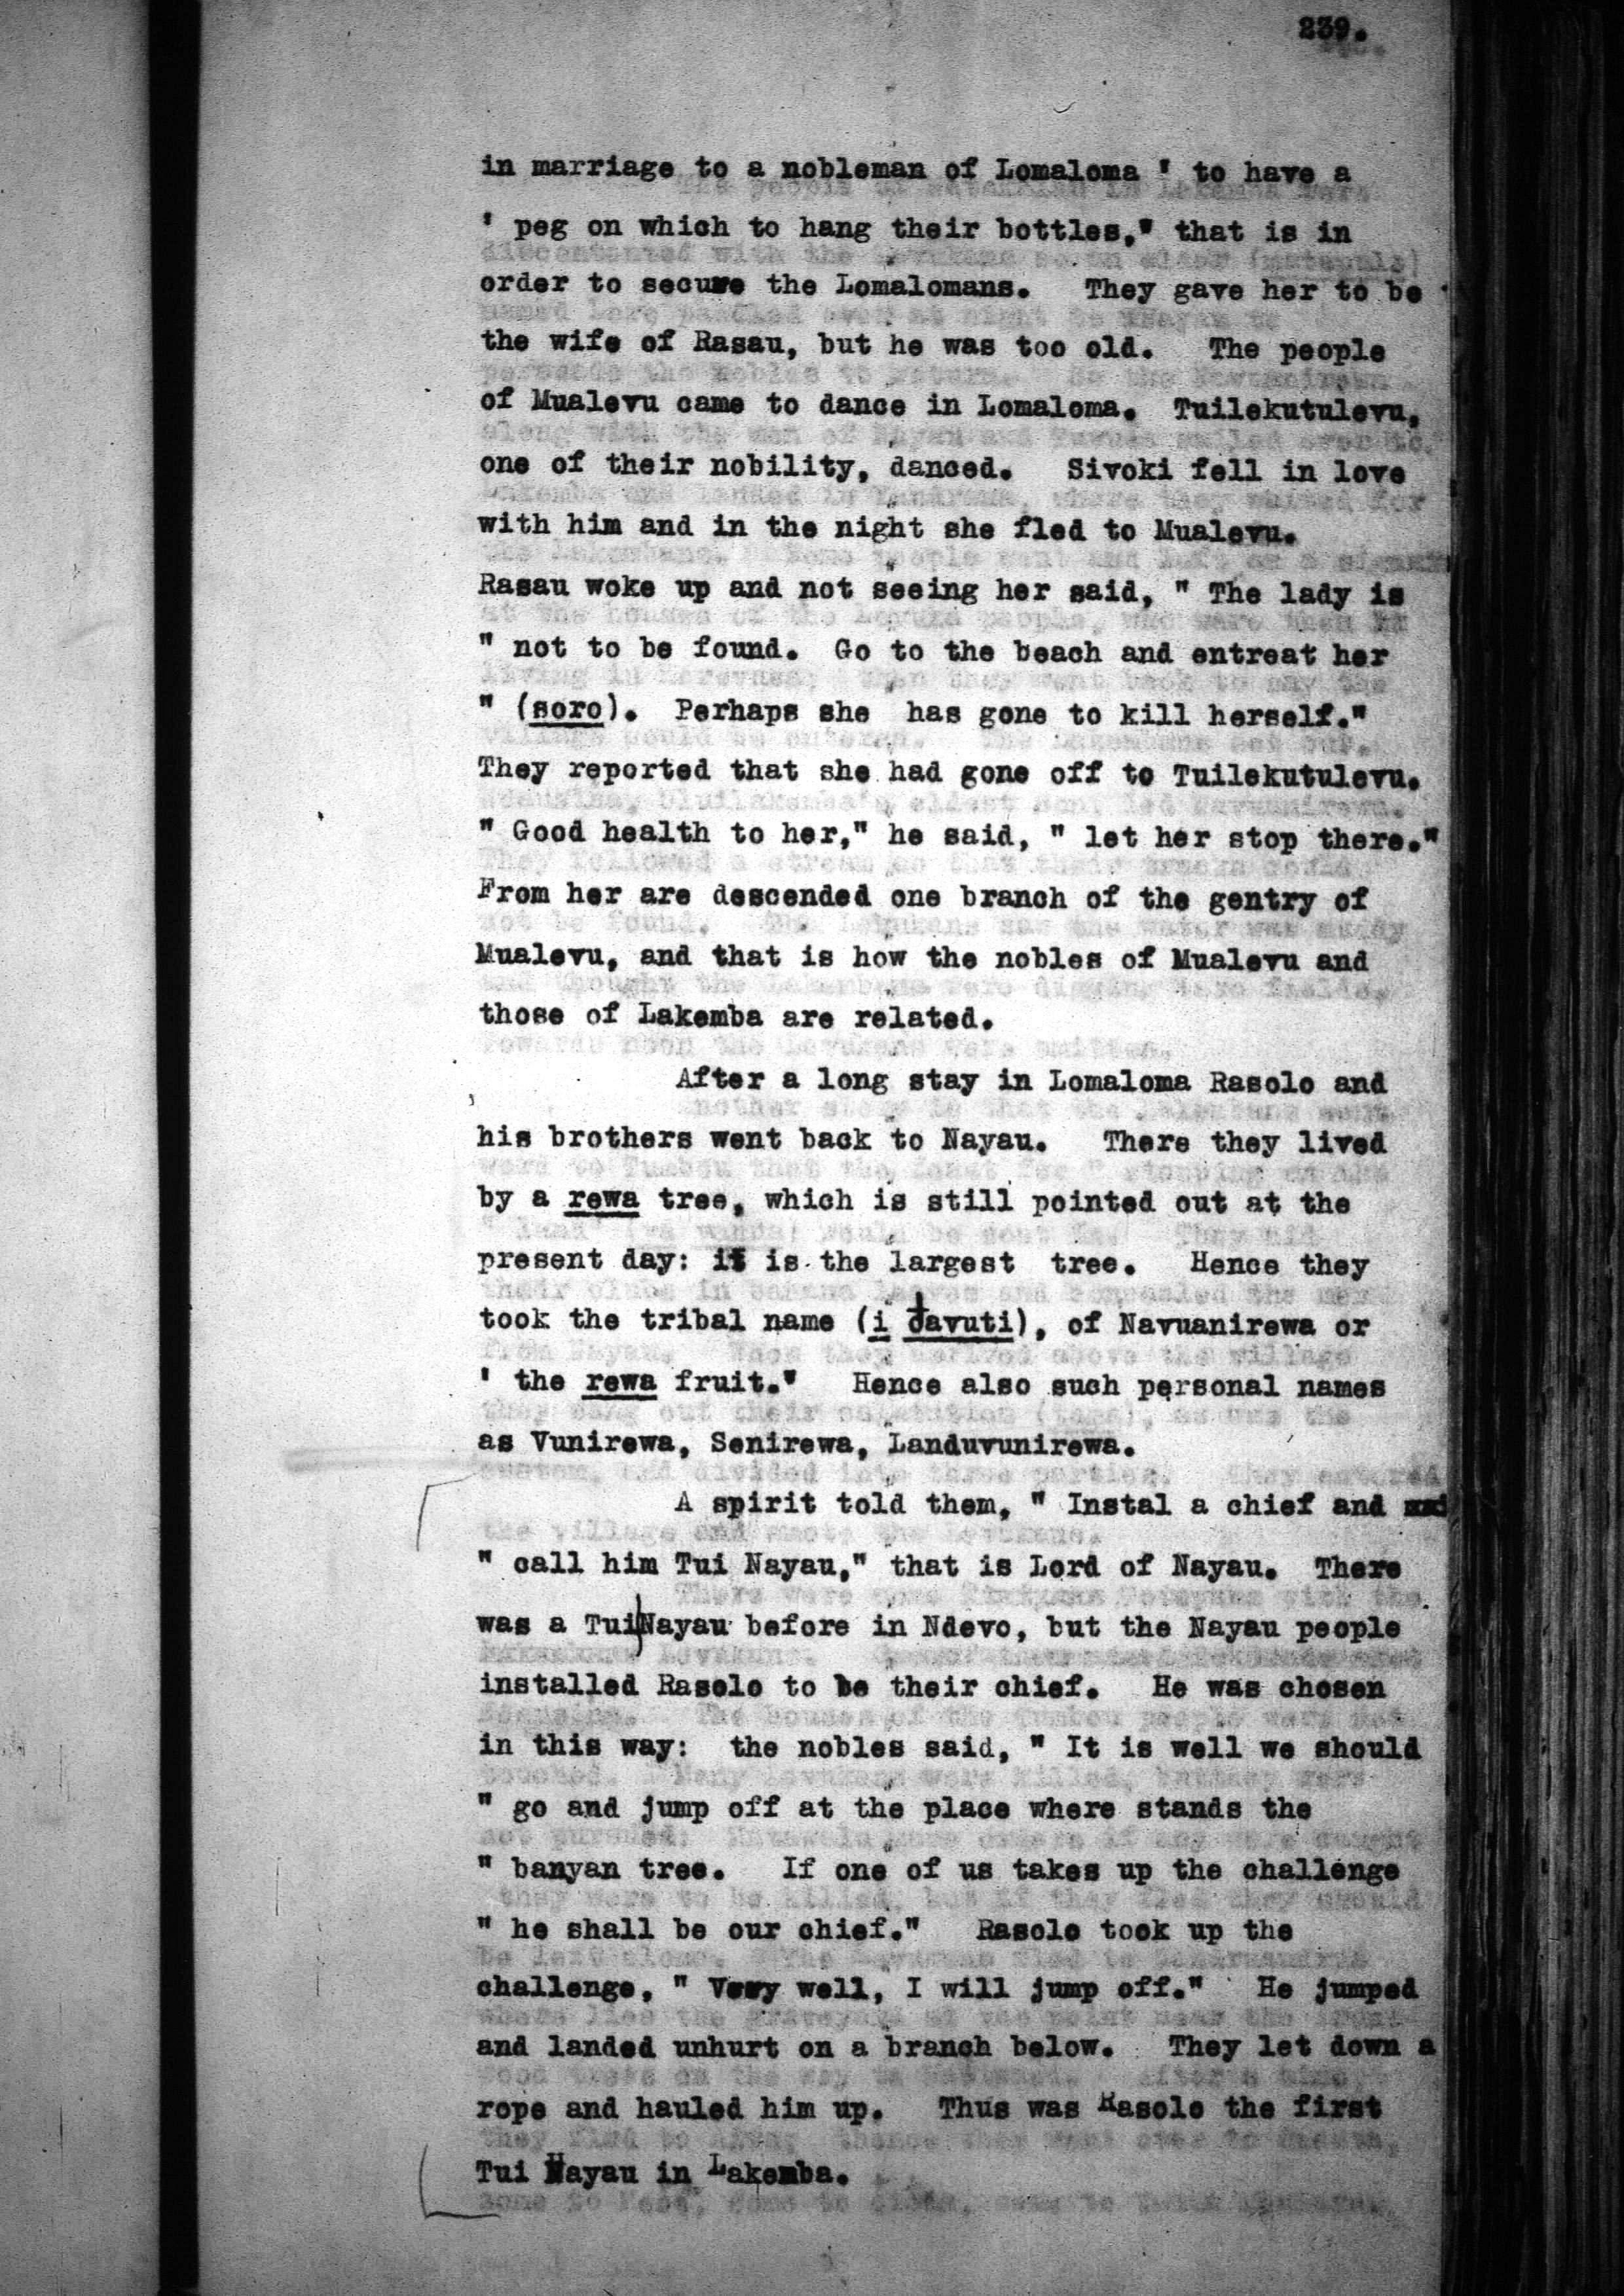 239.
in marriage to a nobleman of Lomaloma ' to have a
' peg on which to hang their bottles,' that is in
order to secure the Lomalomans. They gave her to be
the wife of Rasau, but he was too old. The people
of Mualevu came to dance in Lomaloma. Tuilekutulevu,
one of their nobility, danced. Sivoki fell in love
with him and in the night she fled to Mualevu.
Rasau woke up and not seeing her said, " The lady is
" not to be found. Go to the beach and entreat her
" (soro). Perhaps she has gone to kill herself."
They reported that she had gone off to Tuilekutulevu.
" Good health to her," he said, " let her stop there."
From her are descended one branch of the gentry of
Mualevu, and that is how the nobles of Mualevu and
those of Lakemba are related.
After a long stay in Lomaloma Rasolo and
his brothers went back to Nayau. There they lived
by a rewa tree, which is still pointed out at the
present day: it is the largest tree. Hence they
took the tribal name (i davuti), of Navuanirewa or
' the rewa fruit.' Hence also such personal names
as Vunirewa, Senirewa, Landuvunirewa.
A spirit told them, " Instal a chief and
" call him Tui Nayau," that is Lord of Nayau. There
was a Tui|Nayau before in Ndevo, but the Nayau people
installed Rasolo to be their chief. He was chosen
in this way: the nobles said, " It is well we should
" go and jump off at the place where stands the
" banyan tree. If one of us takes up the challenge
" he shall be our chief." Rasolo took up the
challenge, " Very well, I will jump off." He jumped
and landed unhurt on a branch below. They let down a
rope and hauled him up. Thus was Rasolo the first
Tui Nayau in Lakemba.